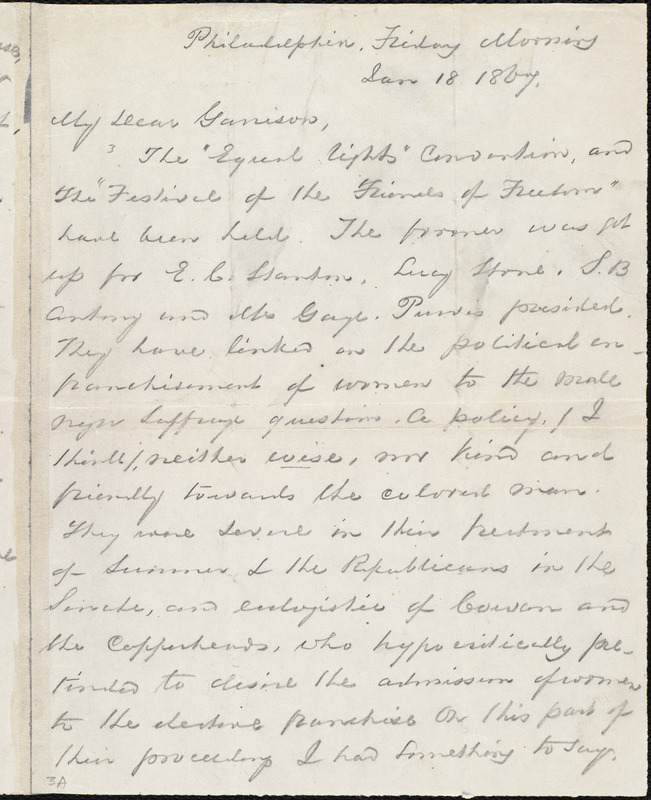 Philadelphia, Friday Morning
Jan 18 1867.
My Dear Garrison,
The "Equal Rights" Convention, and
the "Festival of the Friends of Freedom"
have been held. The former was got
up for E. C. Stanton, Lucy Stone, S. B
Antony and Mrs Gage. Purvis presided.
They have linked on the political en-
franchisement of women to the male
negro suffrage question. A policy, (I
think), neither wise, nor kind and
friendly towards the colored man.
They were severe in their treatment
of Sumner & the Republicans in the
Senate, and eulogistic of Cowan and
the Copperheads, who hypocritically pre-
tended to desire the admission of women
to the elective franchise. On this part of
their proceedings I had something to say.
3A